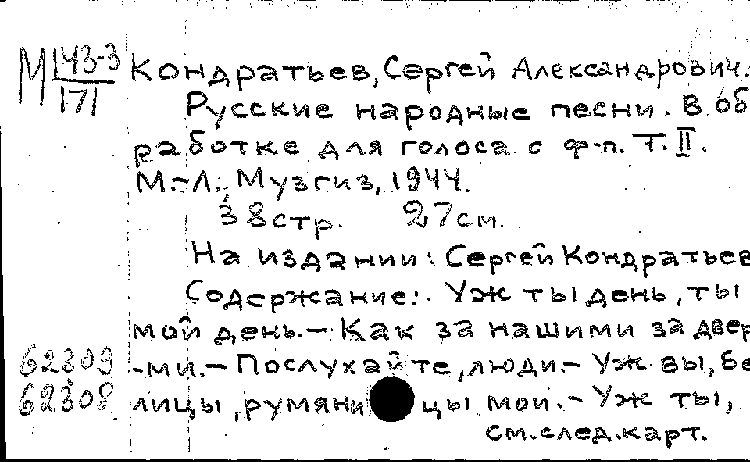 М 143-3 Кондратьев, Сергей Александрович.
171 Русские народные песни. В об
работке для голоса с ф-п. Т. II.
М.-Л., Музгиз, 1944.
38 стр. 27 см.
На издании: Сергей Кондратьев
Содержание: Уж ты день, ты
мой день. - Как за нашими за двер
62309 -ми. - Послухайте, люди - Уж вы, бе
62308 лицы, румяницы мои. - Уж ты,
см. след. карт.